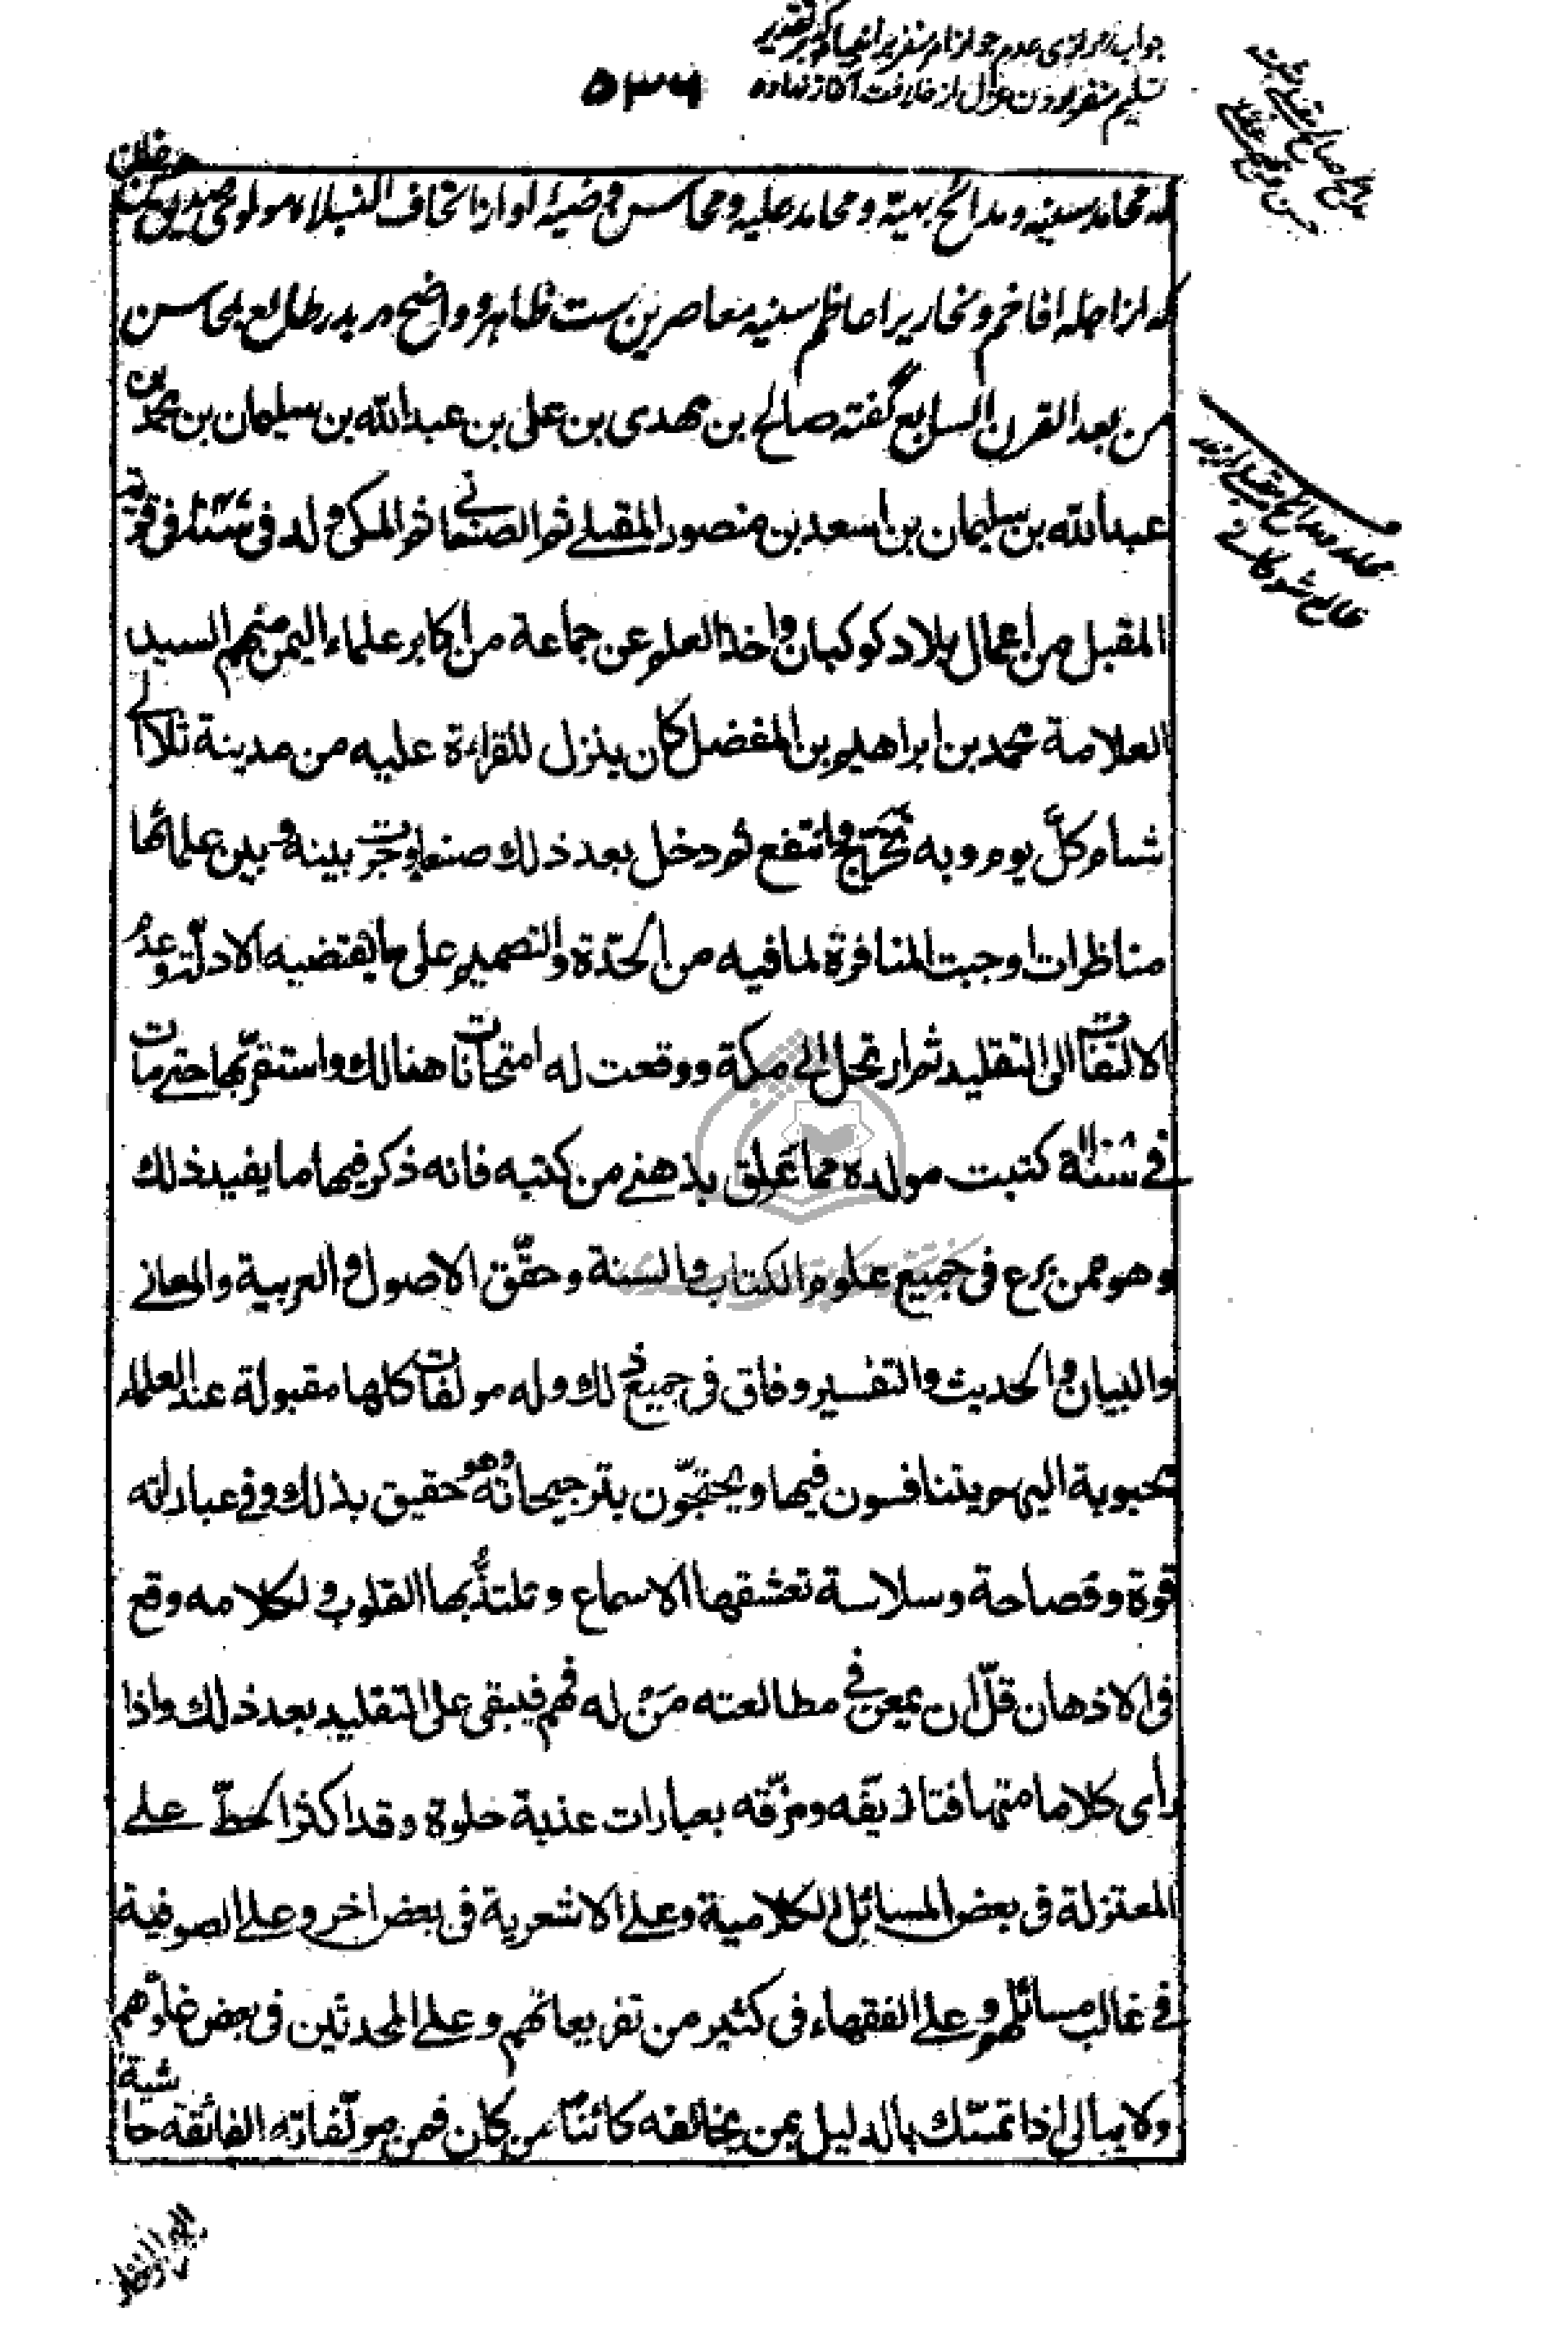 جواب رازی عدم جواز ام منفر بر انبیا
تسلیم منفر بودن عزل از خلافت آغاز نهاده
۵۳۶
محامد و مدائح مقبلی از بدر
طالع شوکانے
که محامد سنیه و مدائح بهیّه و محامد علیه و محاسن وضیئه او از اتحاف النبلاء مولوی صدیق حسن خان
که از اجله افاخم و نحاریر اعاظم سنیه معاصرین ست ظاهر و واضح در بدر طالع بمحاسن
من بعد القرن السابع گفته صالح بن مهدی بن علی بن عبد الله بن سلیمان بن محمد بن
عبد الله بن سلیمان بن اسعد بن منصور المقبلے ثم الصنعانے ثم المکی ولد فی فی قریة
المقبل من اعمال بلاد کوکبان واخذ العلم عن جماعة من اکابر علماء الیمن منهم السید
العلامة محمد بن ابراهیم بن المفضل کان ینزل للقراءة علیه من مدینة ثلا الے
شبام کلّ یوم وبه تخرّج وانتفع ثم دخل بعد ذلك صنعاء وجرت بینه وبین علمائها
مناظرات اوجبت المنافرة لما فیه من الحدّة والتصمیم علی ما یقتضیه الادلّة وعدم
الالتفات الی التقلید ثم ارتحل الی مکة ووقعت له امتحانات هنالك واستقرّ بها حتے مات
فے سنة کتبت مولده مما علق بذهنے من کتبه فانه ذکر فیها ما یفید ذلك
وهو ممن برع فی جمیع علوم الکتاب والسنة وحقّق الاصول والعربیة والمعانے
والبیان والحدیث والتفسیر وفاق فی جمیع ذلك وله مولفات کلها مقبولة عند العلماء
محبوبة الیهم یتنافسون فیها ویحتجّون بترجیحاته وهو حقیق بذلك وفی عباراته
قوة وفصاحة وسلاسة تعشقها الاسماع وتلتذّ بها القلوب ولکلامه وقع
فی الاذهان قلّ ان یمعن فی مطالعته مَنْ له فهم فیبقی علی التقلید بعد ذلك واذا
رأی کلاما متهافتا زیّفه ومزّقه بعبارات عذبة حلوة وقد اکثر الحطّ علے
المعتزلة فی بعض المسائل الکلامیة وعلے الاشعریة فی بعض اخر وعلے الصوفیة
فے غالب مسائلهم وعلے الفقهاء فی کثیر من تفریعاتهم وعلے المحدثین فی بعض غلوّهم
ولا یبالی اذا تمسّك بالدلیل بمن یخالفه کائنًا من کان فمن مولّفاته الفائقة حاشیة